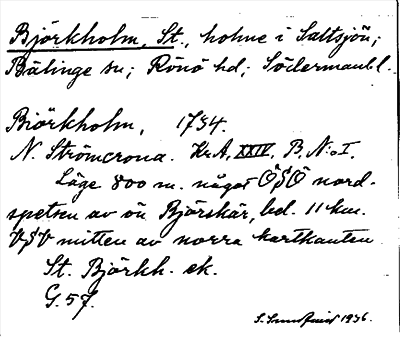 Björkholm, St., holme i Saltsjön;
Bälinge sn; Rönö hd; Södermanl.
Biörkholm, 1734.
N. Strömcrona. Kr.A, XXIV. B. N:o I.
Läge 800 m. något ÖSÖ nord-
spetsen av ön Björskär, bel. 11 km.
VSV mitten av norra kartkanten.
St. Björkh. ek.
G. 57.
S. 1936.